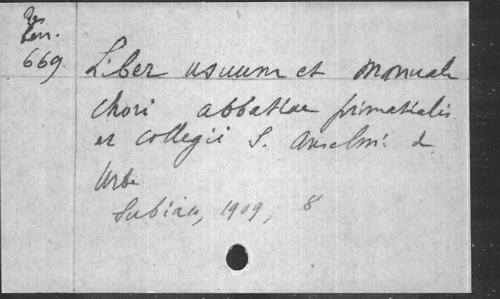 Res
Len.
669
Liber usuum et Manuale
chori abbatiae primatialis
et collegii S. Anselmi de
Urbe
Subiaco, 1909, 8